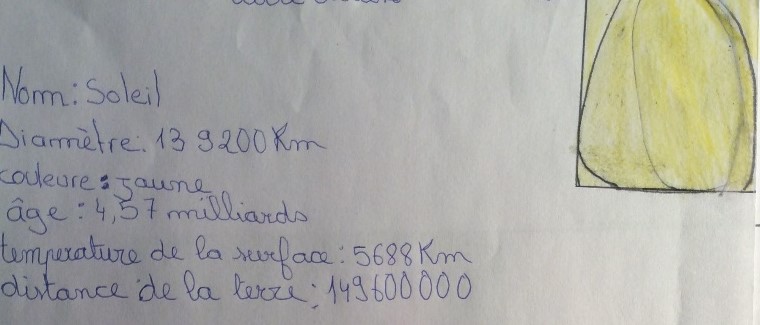 Nom: Soleil
Diamètre: 13 9200 Km
couleure: jaune
âge: 4,57 milliards
température de la surface: 5688 Km
distance de la terre: 149600000